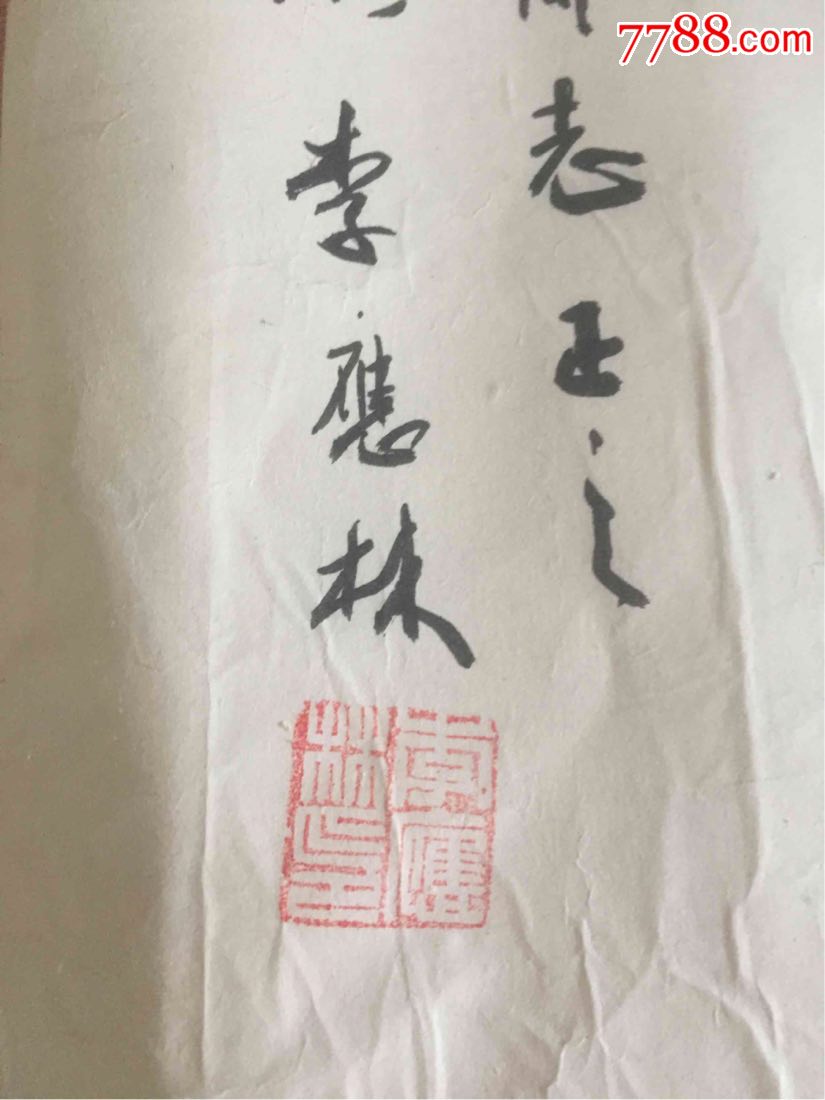 7788.com
志正之
李應林
李應林印